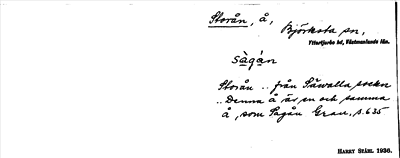 Storån, å,
Björksta sn,
Yttertjurbo hd, Västmanlands län.
sàgán
Storån .. från Säwalla socken
.. Denna å är en och samma
å, som Sagån Grau, s. 635
HARRY STÅHL 1936.